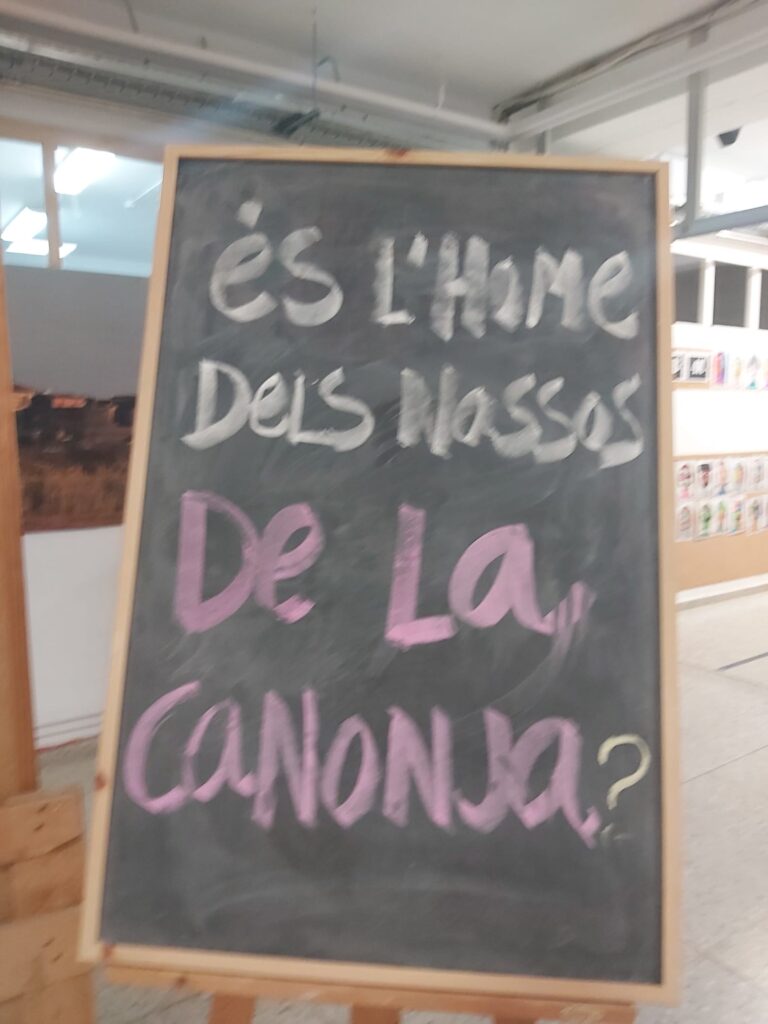 és L'Home
Dels Nassos
De La
Canonja?